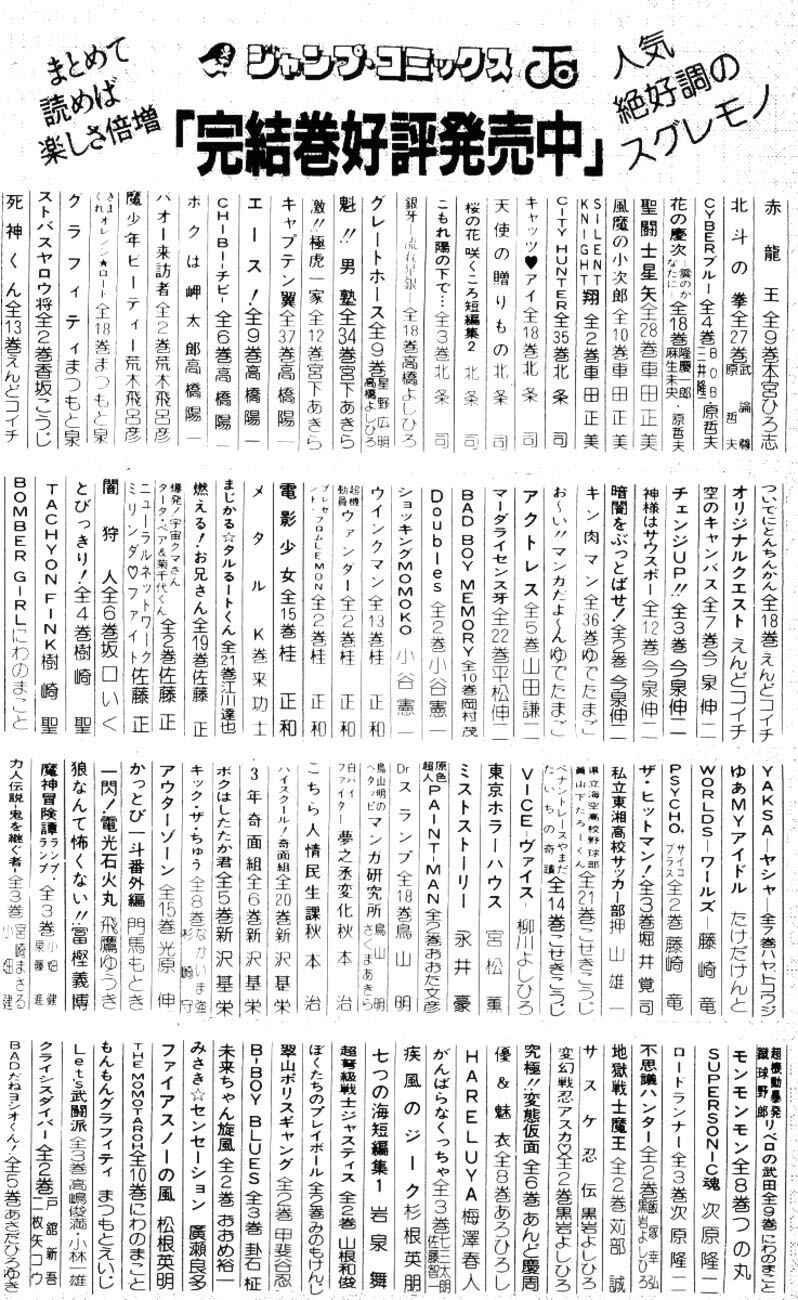 まとめて
読めば
楽しさ倍増
ジャンプ・コミックス
人気
絶好調の
スグレモノ
「完結巻好評発売中」
赤龍王 全9巻 本宮ひろ志
北斗の拳 全27巻 武論尊 原哲夫
CYBERブルー 全4巻 BOB 二井隆 原哲夫
花の慶次―雲のかなたに― 全18巻 隆慶一郎 麻生未央・原哲夫
聖闘士星矢 全28巻 車田正美
風魔の小次郎 全10巻 車田正美
SILENT KNIGHT翔 全2巻 車田正美
CITY HUNTER 全35巻 北条司
キャッツ♥アイ 全18巻 北条司
天使の贈りもの 北条司
桜の花 咲くころ 短編集2 北条司
こもれ陽の下で… 全3巻 北条司
銀牙―流れ星 銀― 全18巻 高橋よしひろ
グレートホース 全9巻 星野広明 高橋よしひろ
魁!!男塾 全34巻 宮下あきら
激!!極虎一家 全12巻 宮下あきら
キャプテン翼 全37巻 高橋陽一
エース! 全9巻 高橋陽一
CHIBI―チビ― 全6巻 高橋陽一
ボクは岬太郎 高橋陽一
バオー来訪者 全2巻 荒木飛呂彦
魔少年ビーティー 荒木飛呂彦
きまぐれオレンジ★ロード 全18巻 まつもと泉
グラフィティ まつもと泉
ストバスヤロウ将 全2巻 香坂こうじ
死神くん 全13巻 えんどコイチ
ついでにとんちんかん 全18巻 えんどコイチ
オリジナルクエスト えんどコイチ
空のキャンバス 全7巻 今泉伸二
チェンジUP!! 全3巻 今泉伸二
神様はサウスポー 全12巻 今泉伸二
暗闇をぶっとばせ! 全2巻 今泉伸二
キン肉マン 全36巻 ゆでたまご
お〜い!!マンガだよ〜ん ゆでたまご
アクトレス 全5巻 山田謙二
マーダライセンス牙 全22巻 平松伸二
BAD BOY MEMORY 全10巻 岡村茂
Doubles 全2巻 小谷憲一
ショッキングMOMOKO 小谷憲一
ウイングマン 全13巻 桂正和
超機動員ヴァンダー 全2巻 桂正和
プレゼント・フロムLEMON 全2巻 桂正和
電影少女 全15巻 桂正和
メタルK 巻来功士
まじかる☆タルるートくん 全21巻 江川達也
燃える!お兄さん 全19巻 佐藤正
爆発!宇宙クマさんタータ・ベア&菊千代くん 全2巻 佐藤正
ニューラルネットワーク ミリンダ♡ファイト 佐藤正
闇狩人 全6巻 坂口いく
とびっきり! 全4巻 樹崎聖
TACHYON FINK 樹崎聖
BOMBER GIRL にわのまこと
YAKSA―ヤシャ― 全7巻 ハヤトコウジ
ゆあMYアイドル たけだけんと
WORLDS―ワールズ― 藤崎竜
PSYCHO+ サイコプラス 全2巻 藤崎竜
ザ・ヒットマン! 全3巻 堀井覚司
私立東湘高校サッカー部 押山雄一
県立海空高校野球部員山下たろーくん 全21巻 こせきこうじ
ペナントレースやまだたいちの奇蹟 全14巻 こせきこうじ
VICE―ヴァイス― 柳川よしひろ
東京ホラーハウス 宮松薫
ミストストーリー 永井豪
原色超人PAINT-MAN 全2巻 おおた文彦
Dr.スランプ 全18巻 鳥山明
鳥山明のヘタッピマンガ研究所 鳥山明 さくまあきら
白バイファイター夢之丞変化 秋本治
こちら人情民生課 秋本治
ハイスクール!奇面組 全20巻 新沢基栄
3年奇面組 全6巻 新沢基栄
ボクはしたたか君 全5巻 新沢基栄
キック・ザ・ちゅう 全8巻 なかいま強 杉崎守
アウターゾーン 全15巻 光原伸
かっとび一斗番外編 門馬もとき
一閃!電光石火丸 飛鷹ゆうき
狼なんて怖くない!! 冨樫義博
魔神冒険譚ランプ・ランプ 全3巻 小畑健 泉藤進
力人伝説―鬼を継ぐ者― 全3巻 宮崎まさる 小畑健
超機動暴発蹴球野郎リベロの武田 全9巻 にわのまこと
モンモンモン 全8巻 つの丸
SUPERSONIC魂 次原隆二
ロードランナー 全3巻 次原隆二
不思議ハンター 全2巻 飯塚幸弘 黒岩よしひろ
地獄戦士魔王 全2巻 刈部誠
サスケ忍伝 黒岩よしひろ
変幻戦忍アスカ♡ 全2巻 黒岩よしひろ
究極!!変態仮面 全6巻 あんど慶周
優&魅衣 全8巻 あろひろし
HARELUYA 梅澤春人
がんばらなくっちゃ 全3巻 七三太朗 佐藤智一
疾風のジーク 杉根英朋
七つの海 短編集1 岩泉舞
超弩級戦士ジャスティス 全2巻 山根和俊
ぼくたちのプレイボール 全2巻 みのもけんじ
翠山ポリスギャング 全2巻 甲斐谷忍
B・BOY BLUES 全3巻 卦石柾
未来ちゃん旋風 全2巻 おおめ裕一
みさき☆センセーション 廣瀬良多
ファイアスノーの風 松根英明
THE MOMOTAROH 全10巻 にわのまこと
もんもんグラフィティ まつもとえいじ
Let's武闘派 全3巻 高嶋俊満・小林一雄
クライシスダイバー 全2巻 戸舘新吾 二枚矢コウ
BADだねヨシオくん! 全5巻 あさだひろゆき